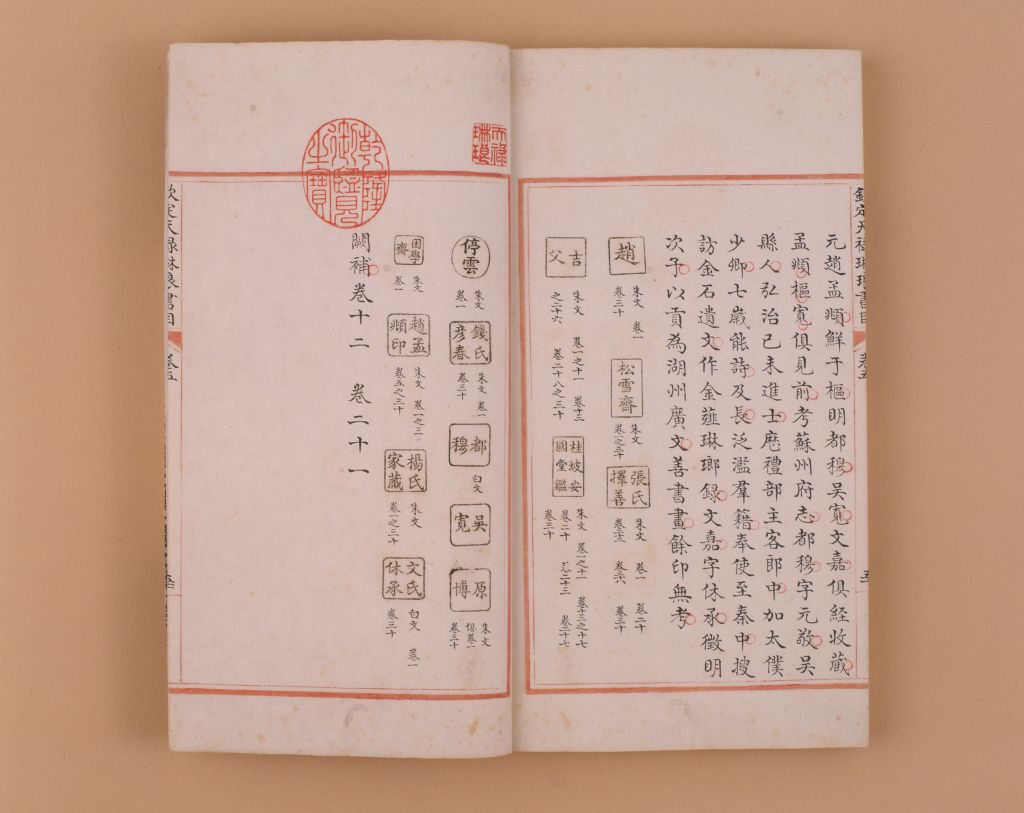 欽定天祿琳琅書目
卷五
元趙孟頫鮮于樞明都穆吳寬文嘉俱経收藏
孟頫樞寬俱見前考蘇州府志都穆字元敬吳
縣人弘治己未進士歷禮部主客郎中加太僕
少卿七歳能詩及長泛濫羣籍奉使至秦中搜
訪金石遺文作金薤琳瑯録文嘉字休承徵明
次子以貢為湖州廣文善書畫餘印無考
趙
朱文 卷一
卷三十
松雪齋
朱文
卷一之三十
張氏擇善
朱文 卷一 卷二十
卷三十
吉父
朱文 卷一之十一 卷十三
之二十六 卷二十八之三十
桂坡安國堂鑑
朱文 卷一之十一 卷十三之十七
卷二十 卷二十三 卷二十七
卷三十
天祿琳琅
停雲
朱文
卷一
錢氏彥春
朱文 卷一
卷三十
都穆
白文
吳寬
原博
朱文
俱卷一
卷三十
困學齋
朱文
卷一
趙孟頫印
朱文 卷一之三
卷五之三十
楊氏家藏
朱文
卷一之三十
文氏休承
白文 卷一
卷三十
闕補卷十二 卷二十一
乾隆御覽之寶
欽定天祿琳琅書目
卷五